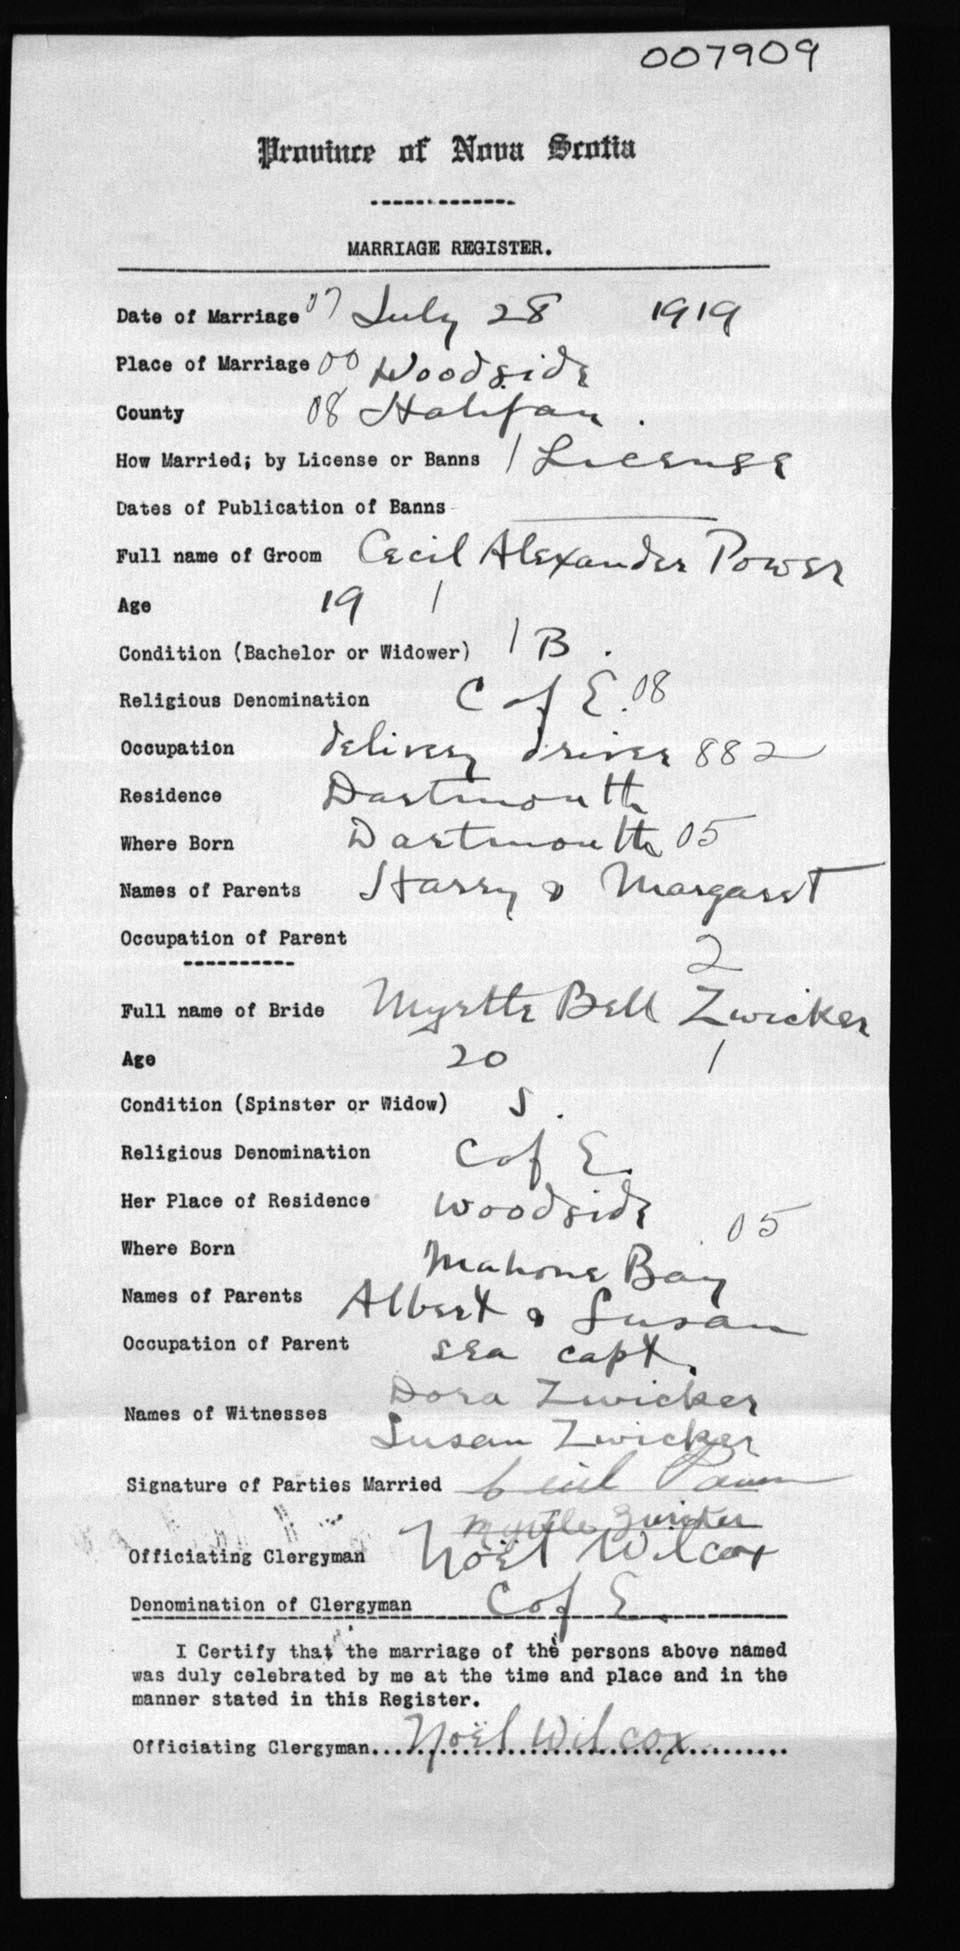 007909
Province of Nova Scotia
MARRIAGE REGISTER.
Date of Marriage 07 July 28 1919
Place of Marriage 00 Woodside
County 08 Halifax.
How Married; by License or Banns 1 License
Dates of Publication of Banns
Full name of Groom Cecil Alexander Power
Age 19 1
Condition (Bachelor or Widower) 1 B.
Religious Denomination C of E. 08
Occupation delivery driver 882
Residence Dartmouth
Where Born Dartmouth 05
Names of Parents Harry & Margaret
Occupation of Parent
2
Full name of Bride Myrtle Bell Zwicker
Age 20 1
Condition (Spinster or Widow) S.
Religious Denomination C of E.
Her Place of Residence Woodside
Where Born Mahone Bay 05
Names of Parents Albert & Susan
Occupation of Parent sea capt.
Names of Witnesses Dora Zwicker
Susan Zwicker
Signature of Parties Married Cecil Power
Myrtle Zwicker
Officiating Clergyman Noël Wilcox
Denomination of Clergyman C of E.
I Certify that the marriage of the persons above named
was duly celebrated by me at the time and place and in the
manner stated in this Register.
Officiating Clergyman Noël Wilcox